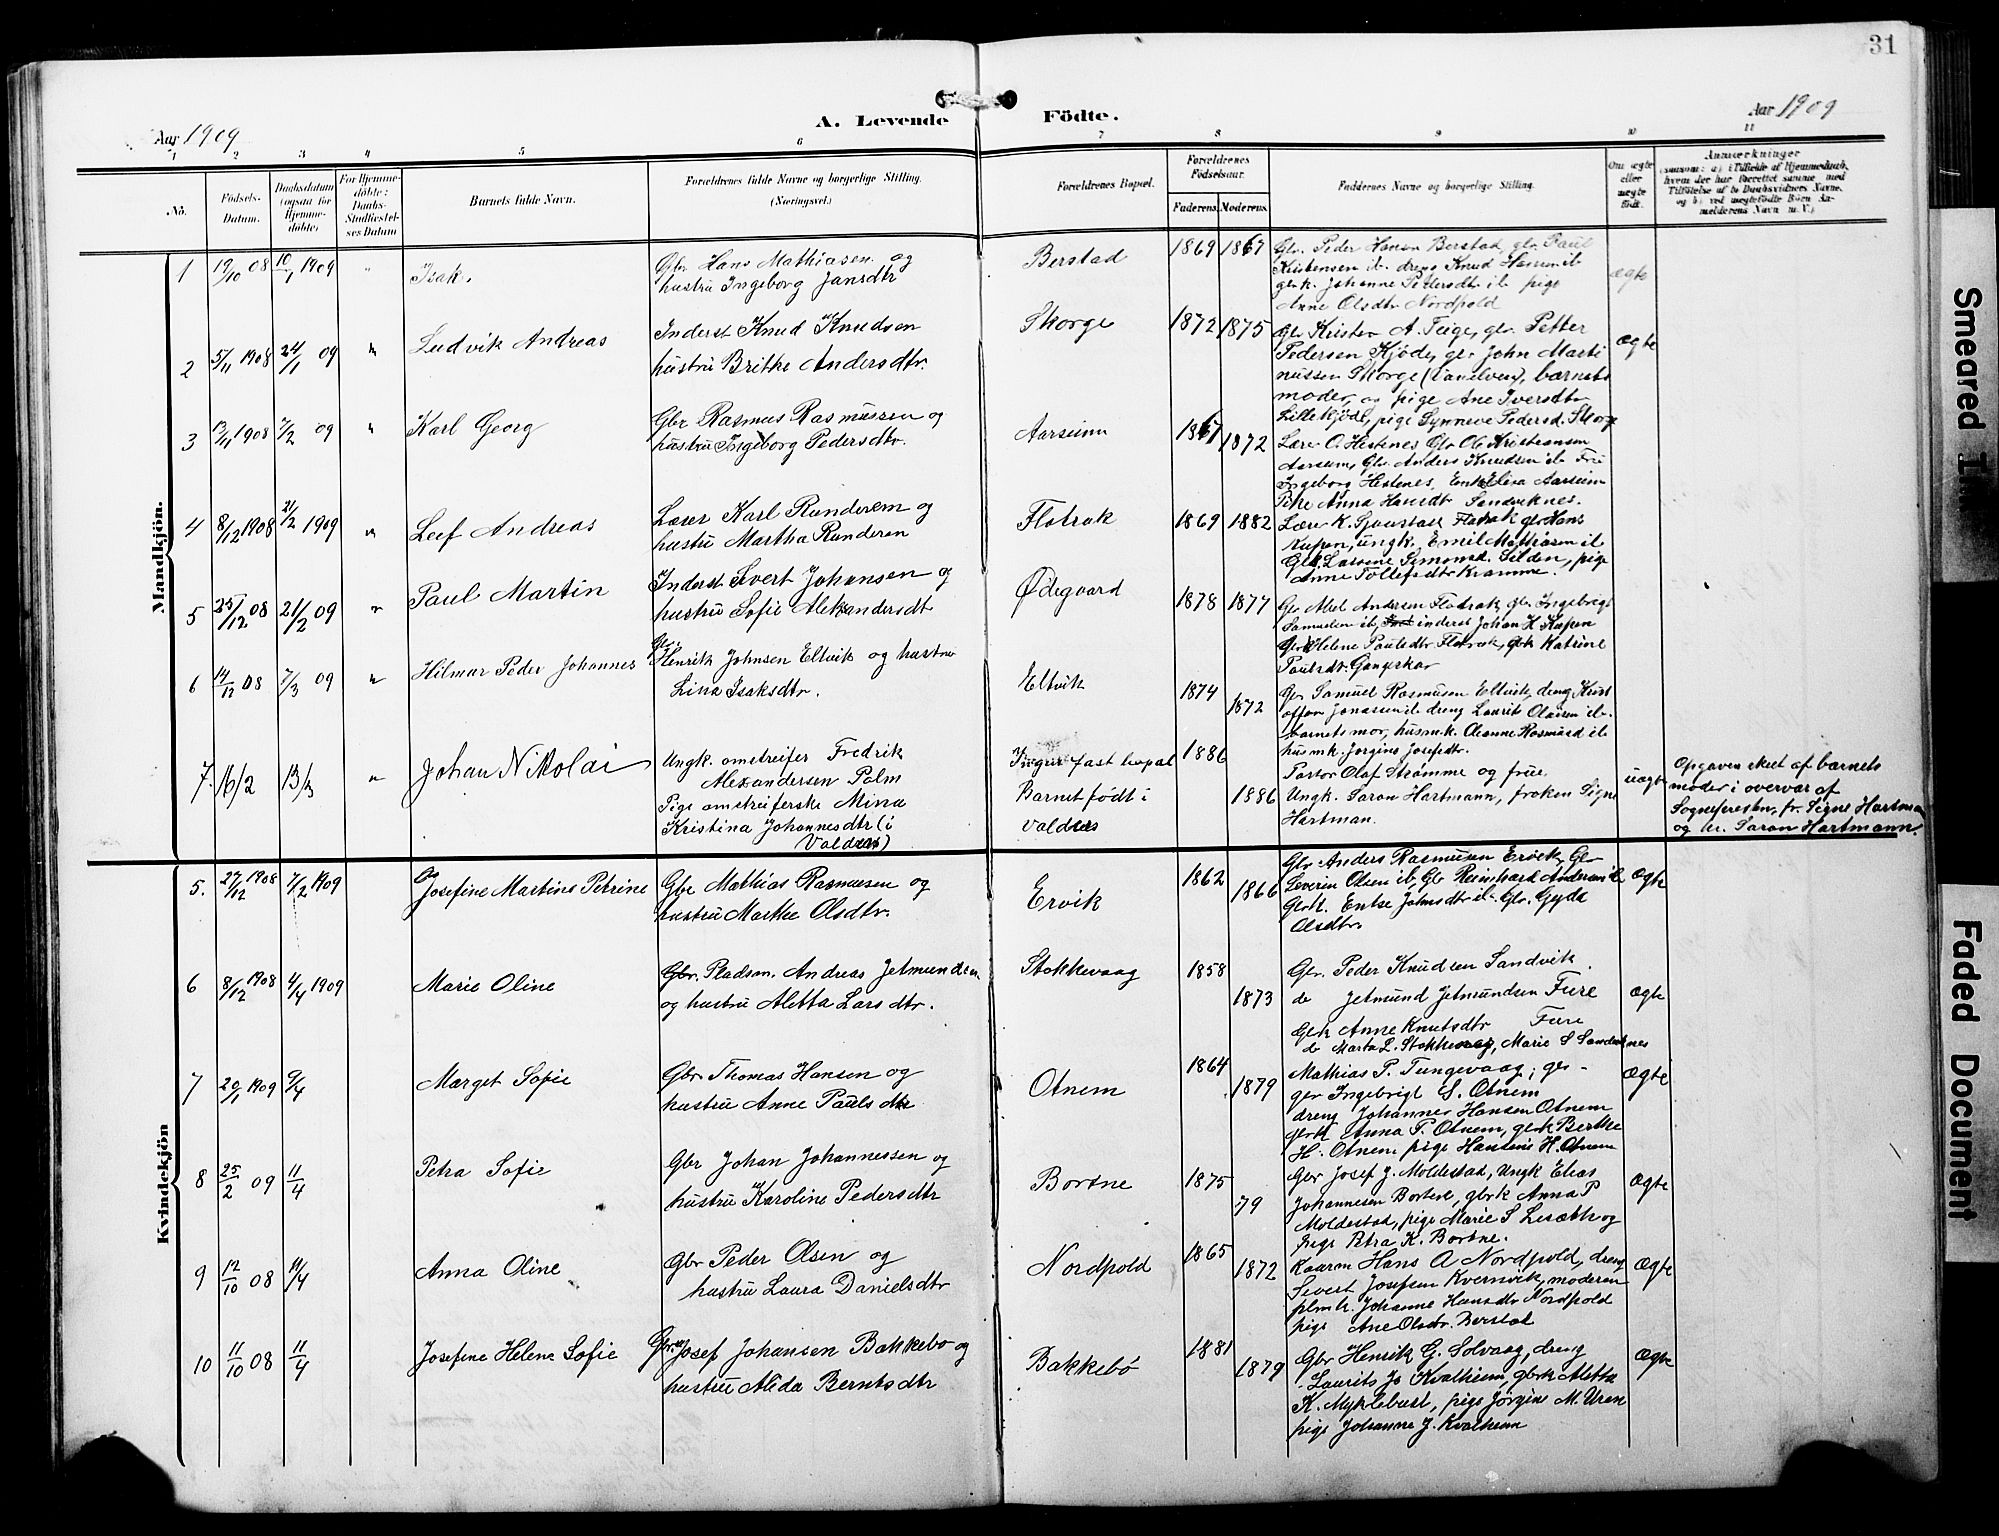 31
Aar 1909
A. Levende Födte.
Aar 1909
1 2 3 4 5 6 7 8 9 10 11
No.
Födsels-Datum.
Daabsdatum (ogsaa for Hjemmedöbte)
For Hjemmedöbte: Daabs-Stadfæstelses Datum
Barnets fulde Navn.
Forældrenes fulde Navne og borgerlige Stilling.
(Næringsvei.)
Forældrenes Bopæl.
Forældrenes Födselsaar.
Faderens. Moderens.
Faddernes Navne og borgerlige Stilling.
Om ægte eller uægte födt.
Anmærkninger
(saasom: a) i Tilfælde af Hjemmedaab, hvem der har forrettet samme med Tilföielse af to Daabsvidners Navne, og b) ved uægtefödte Börn Anmelderens Navn m. V.)
Mandkjön.
1 19/10 08 10/1 1909 " Isak. Gbr Hans Mathiasen og
hustru Ingeborg Jansdtr Berstad 1869 1867
Gbr. Peder Hansen Berstad, gbr. Paul
Kristensen ib. dreng Knud Hansen ib
gbrk. Johanne Pedersdtr ib pige
Anne Olsdtr Nordpold
ægte
2 5/11 1908 24/1 09 " Ludvik Andreas Inderst Knud Knudsen
hustru Brithe Andersdtr. Skorge 1872 1875
Gbr Kristen A. Tuge, gbr. Petter
Pedersen Kjöde, gbr John Marti
nussen Skorge (Vanelven), barnets
moder, og pige Ane Iversdtr
Lillekjöde, pige Synneve Pedersd. Skorge
ægte
3 13/11 1908 7/2 09 " Karl Georg Gbr Rasmus Rasmussen og
hustru Ingeborg Pedersdtr. Aarseim 1867 1872
Lærer O. Hestenes Gbr Ole Kristiansen
Aarseim, Gbr. Anders Knudsen ib Frue
Ingeborg Hestenes, Enke Elisa Aarseim
Pike Anna Hansdtr Sandviknes.
4 8/12 1908 21/2 1909 " Leif Andreas Læser Karl Runderem og
hustru Martha Runderen Flatrak 1869 1882
Lærer K. Sjaastad Flatrak gbr Hans
Kupen, ungk. Emil Mathiasen ib
Gbk. Lassene Simonsd. Silden, pige
Anne Tollefsdtr Kramme.
5 25/12 08 21/2 09 " Paul Martin Inderst Sivert Johansen og
hustru Sofie Aleksandersdt Ödegaard 1878 1877
Gbr Abel Andersen Flatrak gbr Ingebrigt
Samuelsen ib, inderst Johan K. Kupen
Gbrk Helene Paulsdtr Flatrak, gbrk Katrine
Paulsdtr Gangeskar
6 14/12 08 7/3 09 " Hilmar Peder Johannes Gbr. Henrik Johnsen Eltvik og hustru
Lina Isaksdtr. Eltvik 1874 1872
Gbr Samuel Rasmusen Eltvik, dreng Krist
offer Jonassen ib dreng Laurits Olaisen ib.
barnets mor, husmk. Oleanne Rasmusd ib
husmk. Jorgine Josefsdtr.
7. 16/2 13/3 " Johan Nikolai Ungk. omstreifer Fredrik
Alexandersen Palm
Pige omstreiferske Mina
Kristina Johannesdtr (i
Valders)
Ingen fast bopæl
Barnet födt i
Valders 1886 1886
Pastor Olaf Strömme og frue
Ungk. Saron Hartmann, froken Signe
Hartman.
uægte
Opgaven skeet af barnets
moder i overvær af
Sognepresten, fr. Signe Hartman
og hr. Saron Hartmann.
Kvindekjön
5. 27/12 1908 7/2 1909 Josefine Martine Petrine Gbr Mathias Rasmusen og
hustru Marthe Olsdtr. Ervik 1862 1866
Gbr Anders Rasmusen Ervik, Gbr
Severin Olsen ib, Gbr Reinhard Andersen ib
Gbrk. Enke Johnsdtr ib. Gbr. Gyda
Olsdtr.
Ægte
6 8/12 1908 4/4 1909 Marie Oline Gbr. Pladsm. Andreas Jetmundsen
og hustru Alitta Lars dtr. Stokkevaag 1858 1873
Gbr. Peder Knudsen Sandvik.
do Jetmund Jetmundsen Fure
Gbrk Anne Knutsdtr Fure
do Marta L. Stokkevaag, Marie S Sandviknes
Ægte
7 20/1 1909 9/4 Marget Sofie Gbr Thomas Hansen og
hustru Anne Pauls dtr Otnem 1864 1879
Mathias P. Tungevaag; gbr -
gbr Ingebrigt S. Otnem
dreng Johannes Hansen Otnem
gbrk Anna P. Otnem, gbrk Berthe
H. Otnem pige Hansine H. Otnem
Ægte
8 25/2 09 11/4 Petra Sofie Gbr Johan Johannessen og
hustru Karoline Pedersdtr Bortne 1875 79
Gbr Josef J. Moldestad, Ungk Elias
Johannesen Bortne, gbrk Anna P
Moldestad, pige Marie S Lesæth og
pige Petra K. Bortne.
Ægte
9 12/10 08 11/4 Anna Oline Gbr Peder Olsen og
hustru Laura Danielsdtr Nordpold 1865 1872
Kaarm Hans A Nordpold, dreng
Sivert Josefsen Kvernvik, moderen
plmk. Johanne Hansdtr Nordpold
pige Ane Olsdtr. Berstad
Ægte
10 11/10 08 11/4 Josefine Helene Sofie Gbr Josef Johansen Bakkebö og
hustru Alida Berntsdtr Bakkebö 1881 1879
Gbr Henrik G. Solvaag, dreng
Laurits Jo Kvalheim, gbrk Alitta
K. Myklebust, pige Jörgine M. Uren
pige Johanne J. Kvalheim
Ægte
Smeared Ink
Faded Document